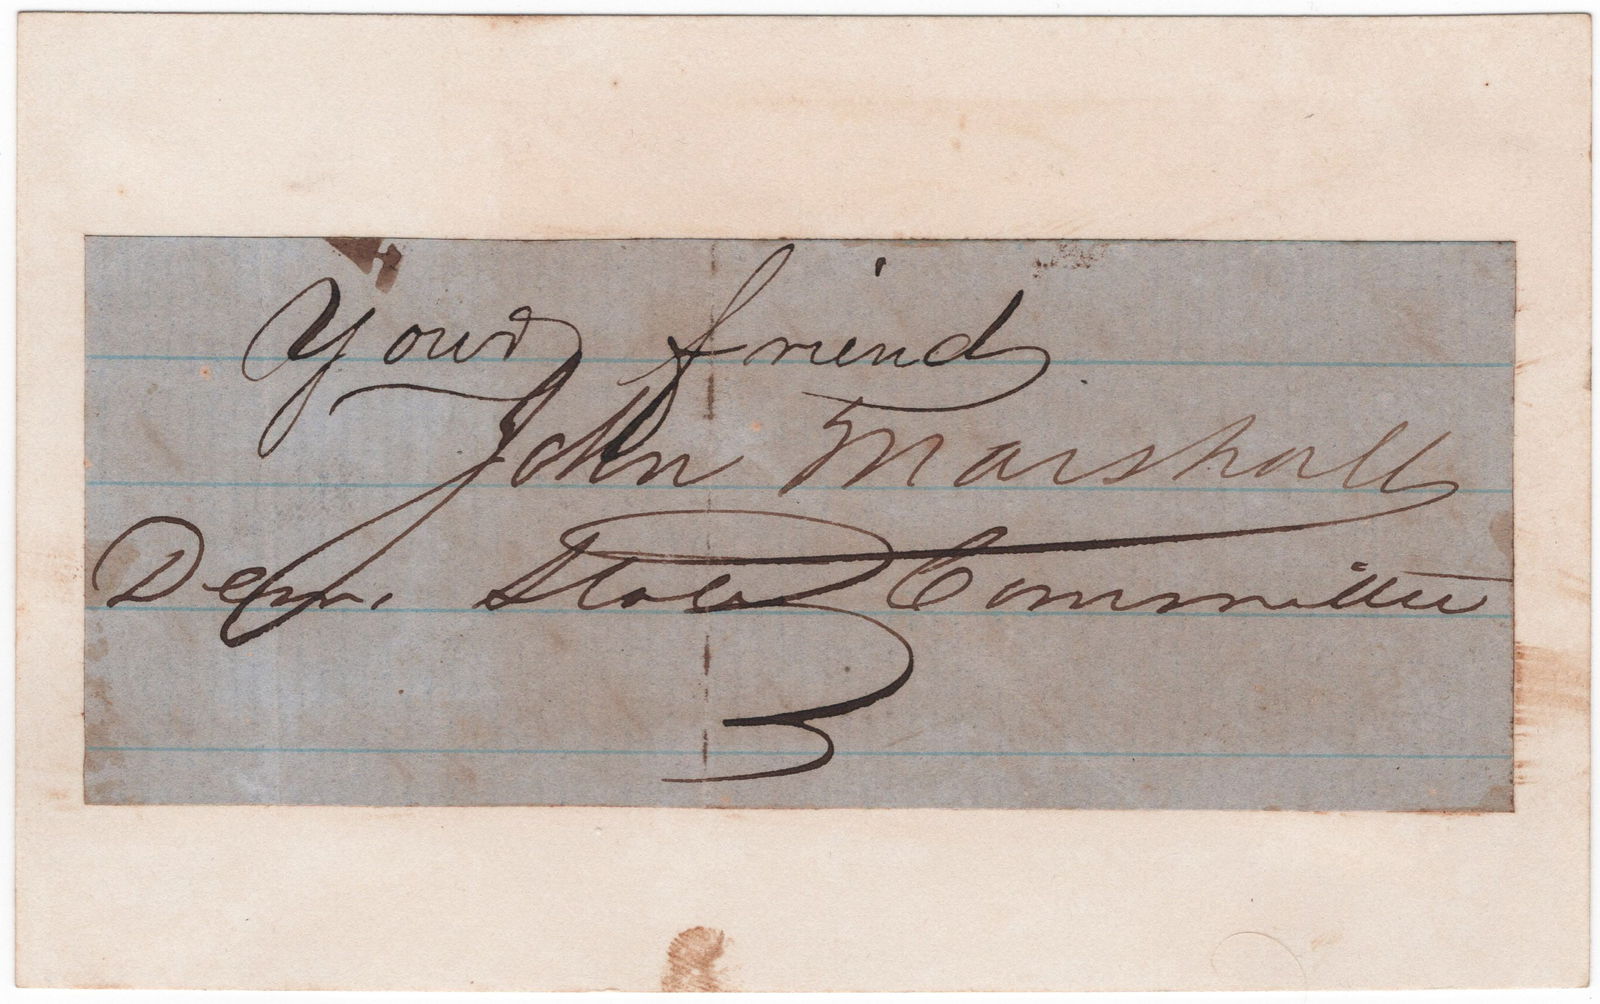 Your friend
John Marshall
Dem. State Committee